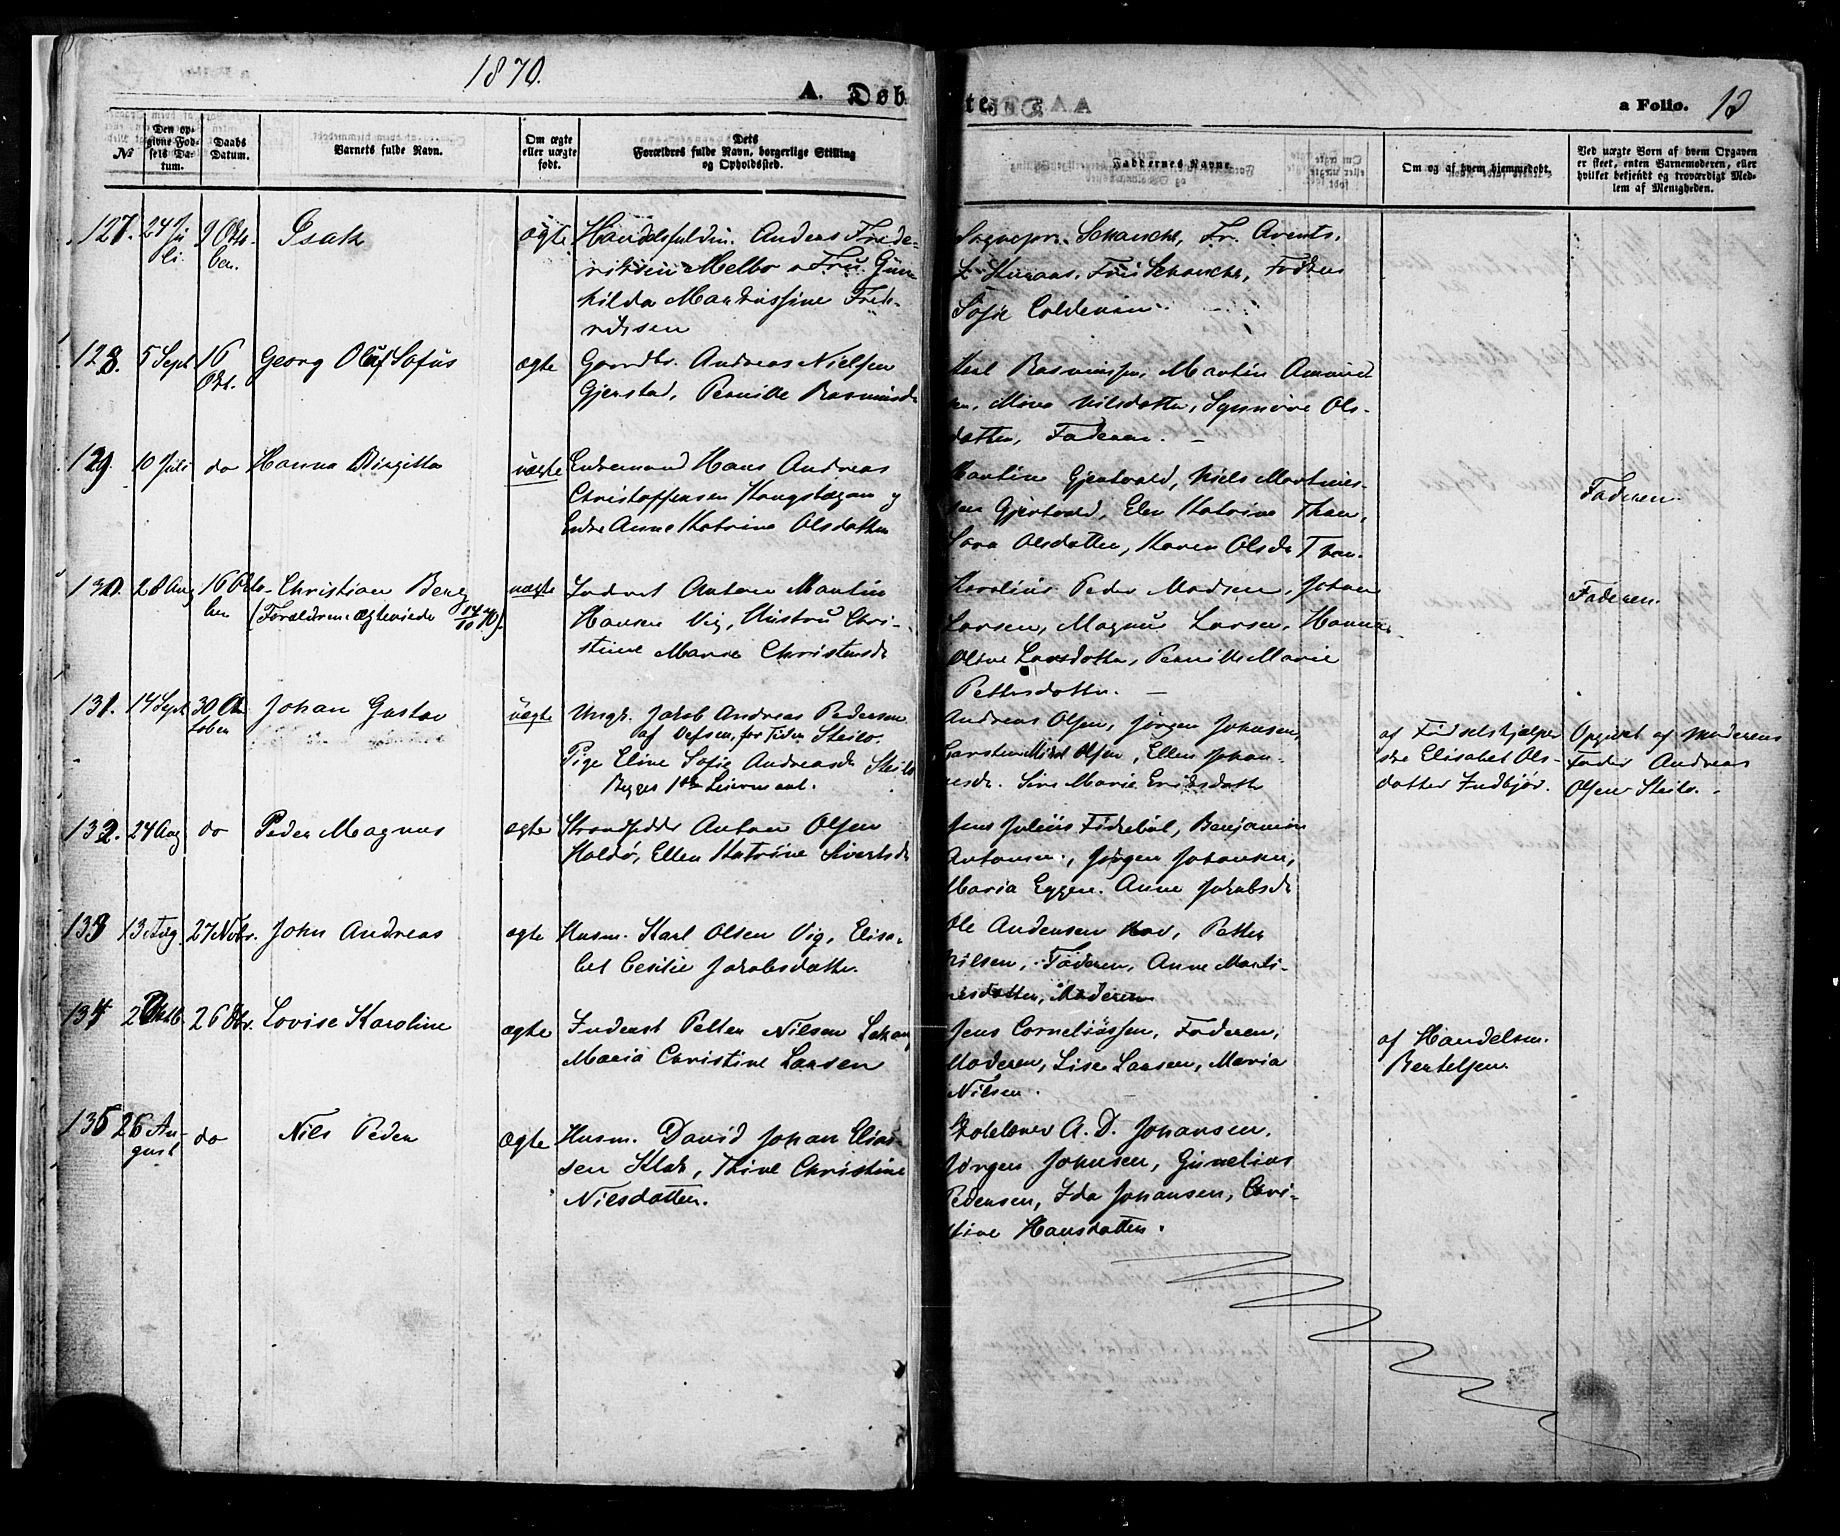 1870.
A. Døbte.
a Folio. 12
№
Den opgivne Fødsels Datum.
Daabs Datum.
Barnets fulde Navn.
Om ægte eller uægte født.
Dets Forældres fulde Navn, borgerlige Stilling og Opholdssted.
Faddernes Navne.
Om og af hvem hjemmedøbt.
Ved uægte Børn af hvem Opgaven er skeet, enten Barnemoderen, eller hvilket bekjendt og troværdigt Medlem af Menigheden.
127. 24 Juli. 9 Octo- ber. Isak ægte
Anders Frede-
riksen Melbo o Fru Gun-
hilda Markussine Fred-
riksen
Sognepr. Schanche, Fr. Arents,
Fru Schanche, Frøken
Sofie Coldevin.
128. 5 Sept 16 Oct. Georg Oluf Sofus ægte
Gaardbr. Andreas Nielsen
Gjerstad, Pernille Rasmusd.
Karl Rasmussen, Martin
Nilsdatter, Synnøve Ols-
datter, Faderen.
129. 10 Juli do Hanna Birgitta uægte
Enkemand Hans Andreas
Christoffersen og
Enke Anne Katrine Olsdatter
Martin Gjertvold, Niels Martines-
sen Gjertvold, Elen Katrine
Sara Olsdatter, Karen Olsd.
Faderen.
130. 28 Aug 16 Octo- ber Christian Berg uægte
(Forældrene ægteviede 14/10 70).
Inderst Anton Martin
Hansen Vig, Hustru Chri-
stine Marie Christensd.
Karolius Peder Madsen, Johan
Larsen, Magnus Larsen, Hanna
Oline Larsdatter, Pernille Marie
Pettersdatter.
Faderen.
131. 14 Sept 30 Oc- tober Johan Gustav uægte
Ungk. Jakob Andreas Pedersen
af Vefsen, for Tiden Steilo.
Pige Eline Sofie Andreasd. Steilo
Begges 1ste Leiermaal.
Andreas Olsen, Jørgen Johnsen,
Olsen, Ellen Johan-
nesd. Marie Eriksdatter
af Fødselshjælper-
ske Elisabet Ols-
datter Indbjør.
Opgivet af Moderens
Fader Andreas
Olsen Steilo.
132. 24 Aug do Peder Magnus ægte
Strandsidder Anton Olsen
Haldø, Ellen Katrine Sivertsd.
Jens Julius Fiskebøl, Benjamin
Antonsen, Jørgen Johansen,
Maria Eggen. Anne Jakobsd.
133 13 Aug. 27 Nobr. John Andreas ægte
Husm. Karl Olsen Vig, Elisa-
bet Cesilie Jakobsdatter.
Ole Andersen Hov, Petter
Nilsen, Faderen, Anne Marti-
nesdatter, Moderen
134 2 Oktb 26 Dbr. Lovise Karoline ægte
Inderst Petter Nilsen
Maria Christine Larsen
Jens Corneliussen, Faderen,
Moderen, Lise Larsen, Maria
Nilsen.
af Handelsm.
Bertelsen
135 26 Au- gust do Nils Peder Ægte
Husm. David Johan Elias-
sen Klak, Trine Christine
Nilsdatter.
Skolelærer A. D. Johansen.
Jørgen Johnsen, Gunelius
Pedersen, Ida Johansen, Chri-
stine Hansdatter.